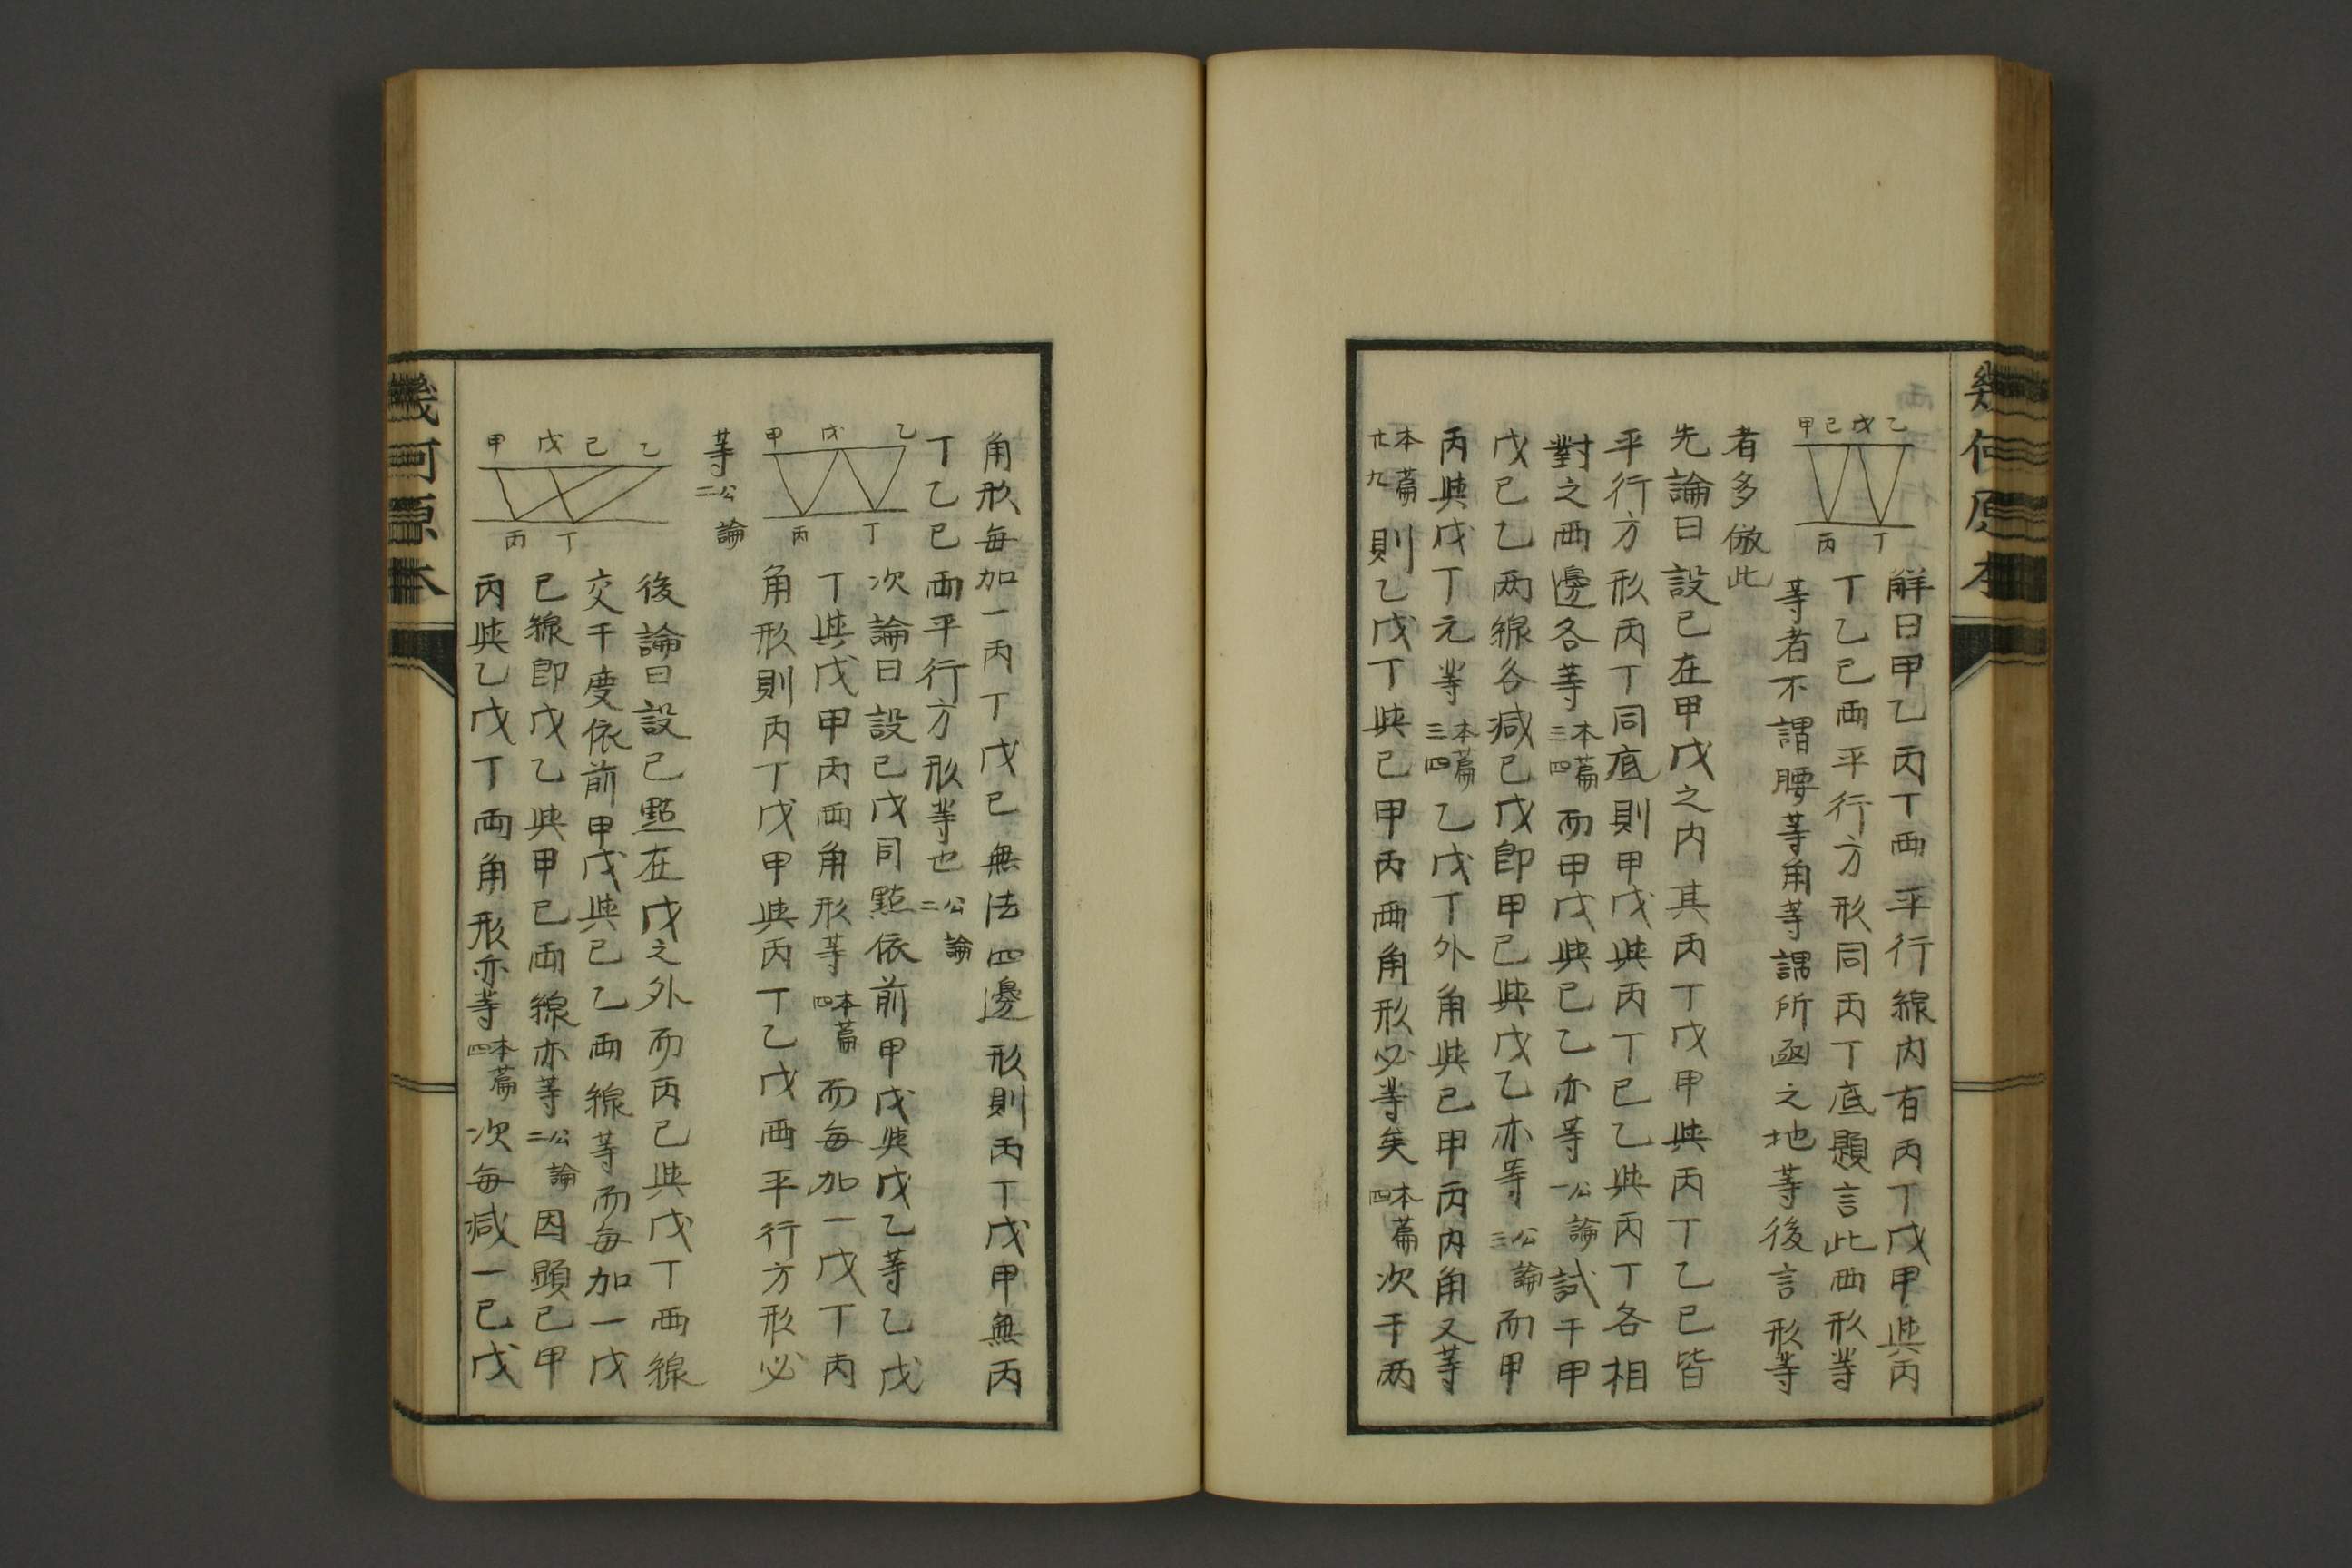 幾何原本
甲己戊乙
丙丁
解曰甲乙丙丁兩平行線內有丙丁戊甲與丙
丁乙己兩平行方形同丙丁底題言此兩形等
等者不謂腰等角等謂所函之地等後言形等
者多倣此
先論曰設己在甲戊之內其丙丁戊甲與丙丁乙己皆
平行方形丙丁同底則甲戊與丙丁己乙與丙丁各相
對之兩邊各等本篇三四而甲戊與己乙亦等公論一試于甲
戊己乙两線各減己戊即甲己與戊乙亦等公論三而甲
丙與戊丁元等本篇三四乙戊丁外角與己甲丙內角又等
本篇廿九則乙戊丁與己甲丙兩角形必等矣本篇四次于两
角形每加一丙丁戊己無法四邊形則丙丁戊甲無丙
丁乙己兩平行方形等也公論二
甲戊乙
丙丁
次論曰設己戊同點依前甲戊與戊乙等乙戊
丁與戊甲丙兩角形等本篇四而每加一戊丁丙
角形則丙丁戊甲與丙丁乙戊兩平行方形必
等公論二
甲戊己乙
丙丁
後論曰設己點在戊之外而丙己與戊丁兩線
交于度依前甲戊與己乙兩線等而每加一戊
己線即戊乙與甲己兩線亦等公論二因顯己甲
丙與乙戊丁兩角形亦等本篇四次每減一己戊
幾何原本